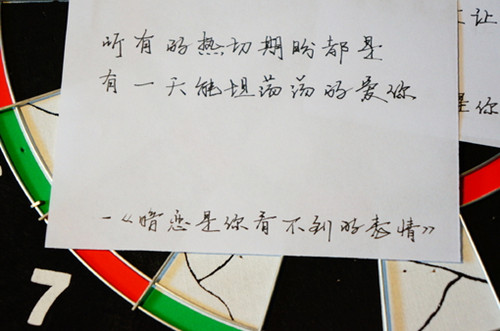 所有的热切期盼都是
有一天能坦荡荡的爱你
-《暗恋是你看不到的表情》
让
是你
7